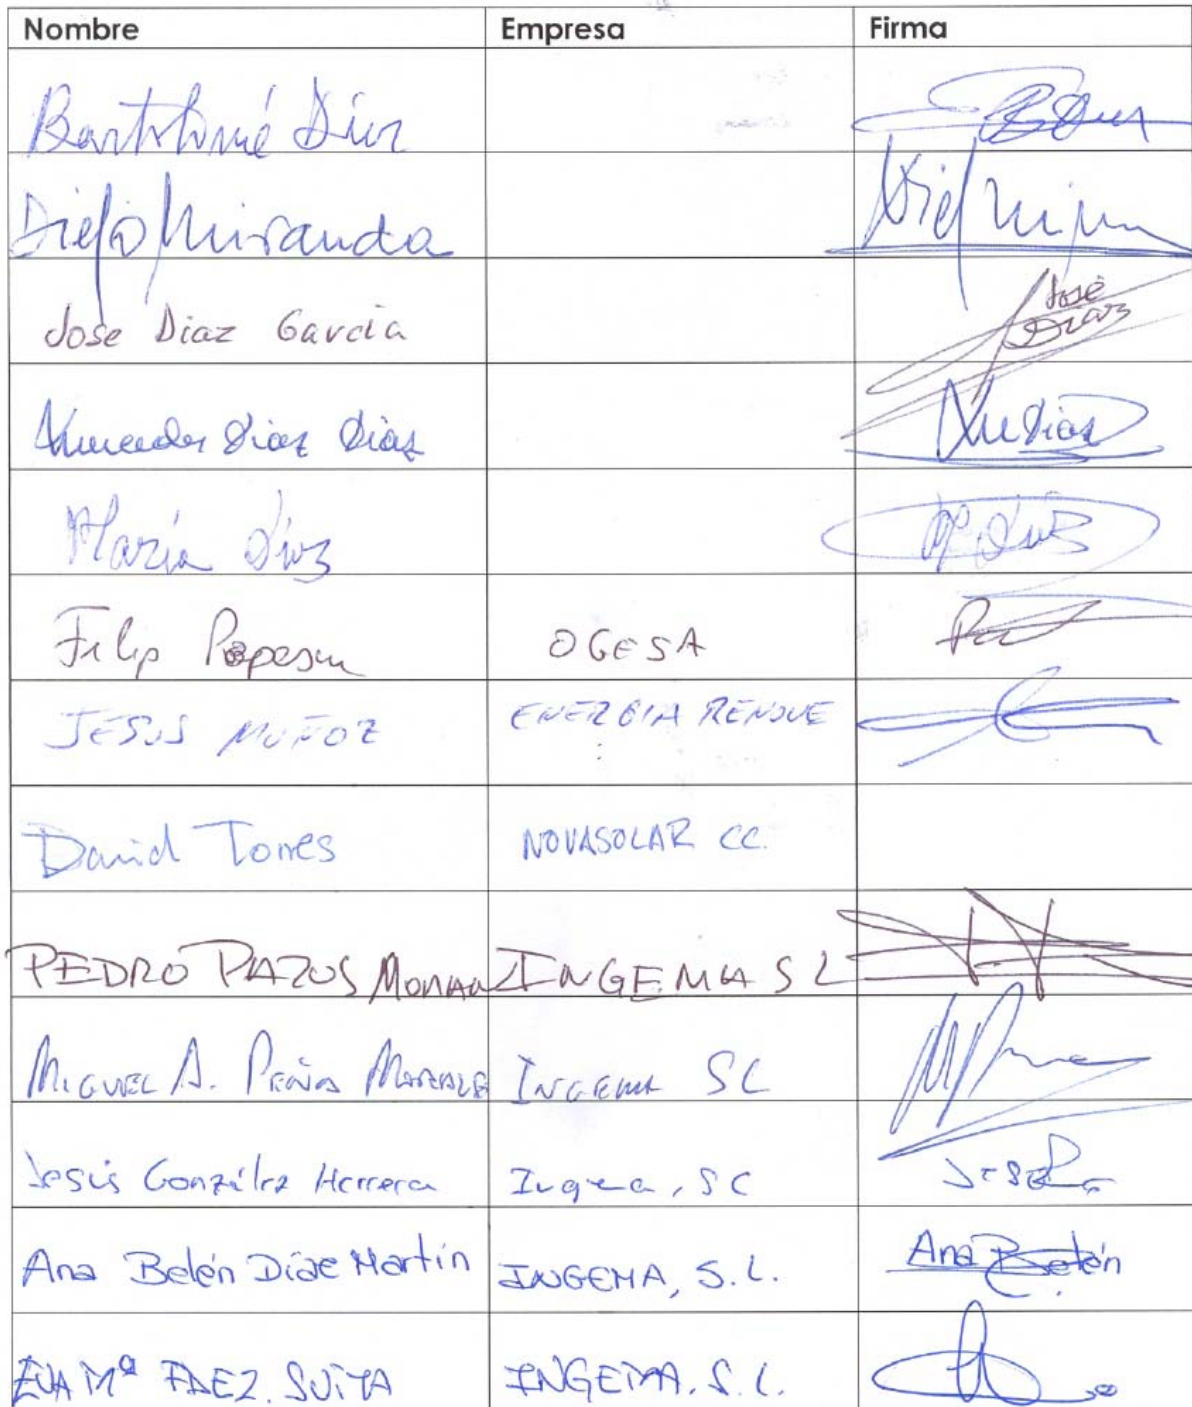 Nombre Empresa Firma
Bartolomé Díaz
Diego Miranda
Jose Diaz Garcia José Díaz
Mercedes Díaz Díaz
María Díaz
Filip Popescu OGESA
JESUS MUÑOZ ENERGIA RENOVE
David Torres NOVASOLAR CC.
PEDRO PAZOS INGEMA SL
MIGUEL A. PEÑA INGEMA SL
Jesús González Herrera
Ana Belén Díaz Martín INGEMA, S.L. Ana Belén
EVA Mª FDEZ. INGEMA, S.L.